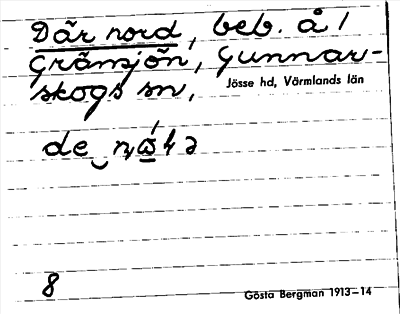 Där nord, beb. å /
Grämsjön, Gunnar-
skogs sn,
Jösse hd, Värmlands län
8
Gösta Bergman 1913–14